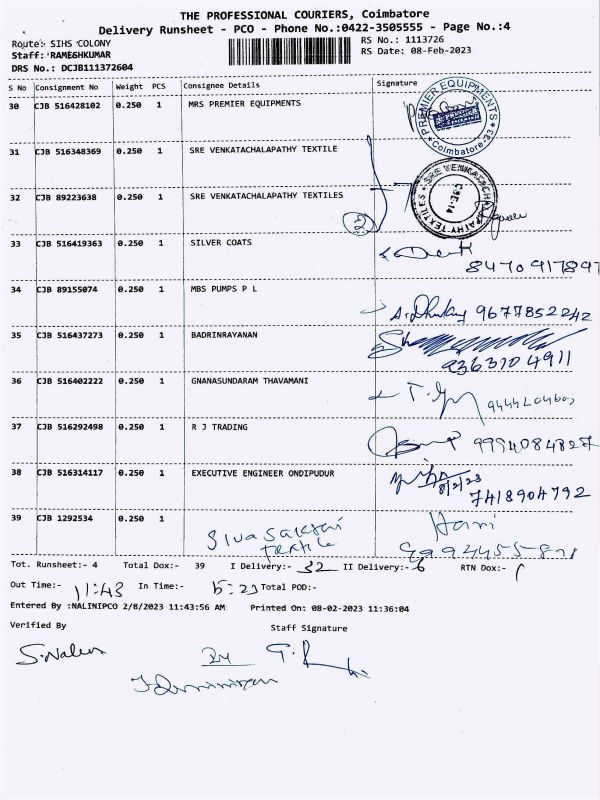 THE PROFESSIONAL COURIERS, Coimbatore
Delivery Runsheet - PCO - Phone No.:0422-3505555 - Page No.:4
Route: SIHS COLONY
RS No.: 1113726
Staff: RAMESHKUMAR
RS Date: 08-Feb-2023
DRS No.: DCJB111372604
S No Consignment No Weight PCS Consignee Details Signature
30 CJB 516428102 0.250 1 MRS PREMIER EQUIPMENTS
PREMIER EQUIPMENTS
Coimbatore-
31 CJB 516348369 0.250 1 SRE VENKATACHALAPATHY TEXTILE
32 CJB 89223638 0.250 1 SRE VENKATACHALAPATHY TEXTILES
SRE VENKATACHALAPATHY TEXTILES
CBE-14
2
33 CJB 516419363 0.250 1 SILVER COATS
847091789
34 CJB 89155074 0.250 1 MBS PUMPS P L
9677852242
35 CJB 516437273 0.250 1 BADRINRAYANAN
9363704911
36 CJB 516402222 0.250 1 GNANASUNDARAM THAVAMANI
37 CJB 516292498 0.250 1 R J TRADING
9994084827
38 CJB 516314117 0.250 1 EXECUTIVE ENGINEER ONDIPUDUR
8/2/23
7418904792
39 CJB 1292534 0.250 1
Siva Sakthi
Textile
Hari
Tot. Runsheet:- 4 Total Dox:- 39 I Delivery:- 32 II Delivery:- 6 RTN Dox:- 1
Out Time:- 11:43 In Time:- Total POD:-
Entered By :NALINIPCO 2/8/2023 11:43:56 AM Printed On: 08-02-2023 11:36:04
Verified By Staff Signature
S.Nalini